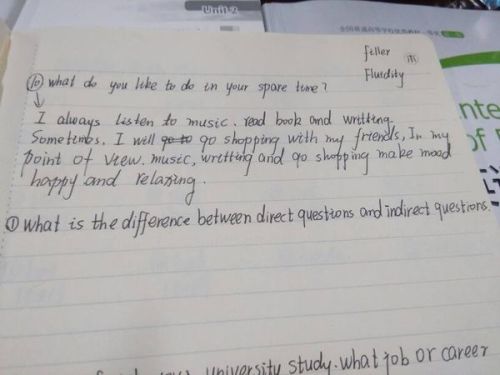 Unit 2
filler
Fluidity
⑩ What do you like to do in your spare time?
I always listen to music. read book and writting.
Sometimes. I will go to go shopping with my friends, In my
point of view. music, writting and go shopping make mood
happy and relaxing.
① What is the difference between direct questions and indirect questions.
university study. what job or career